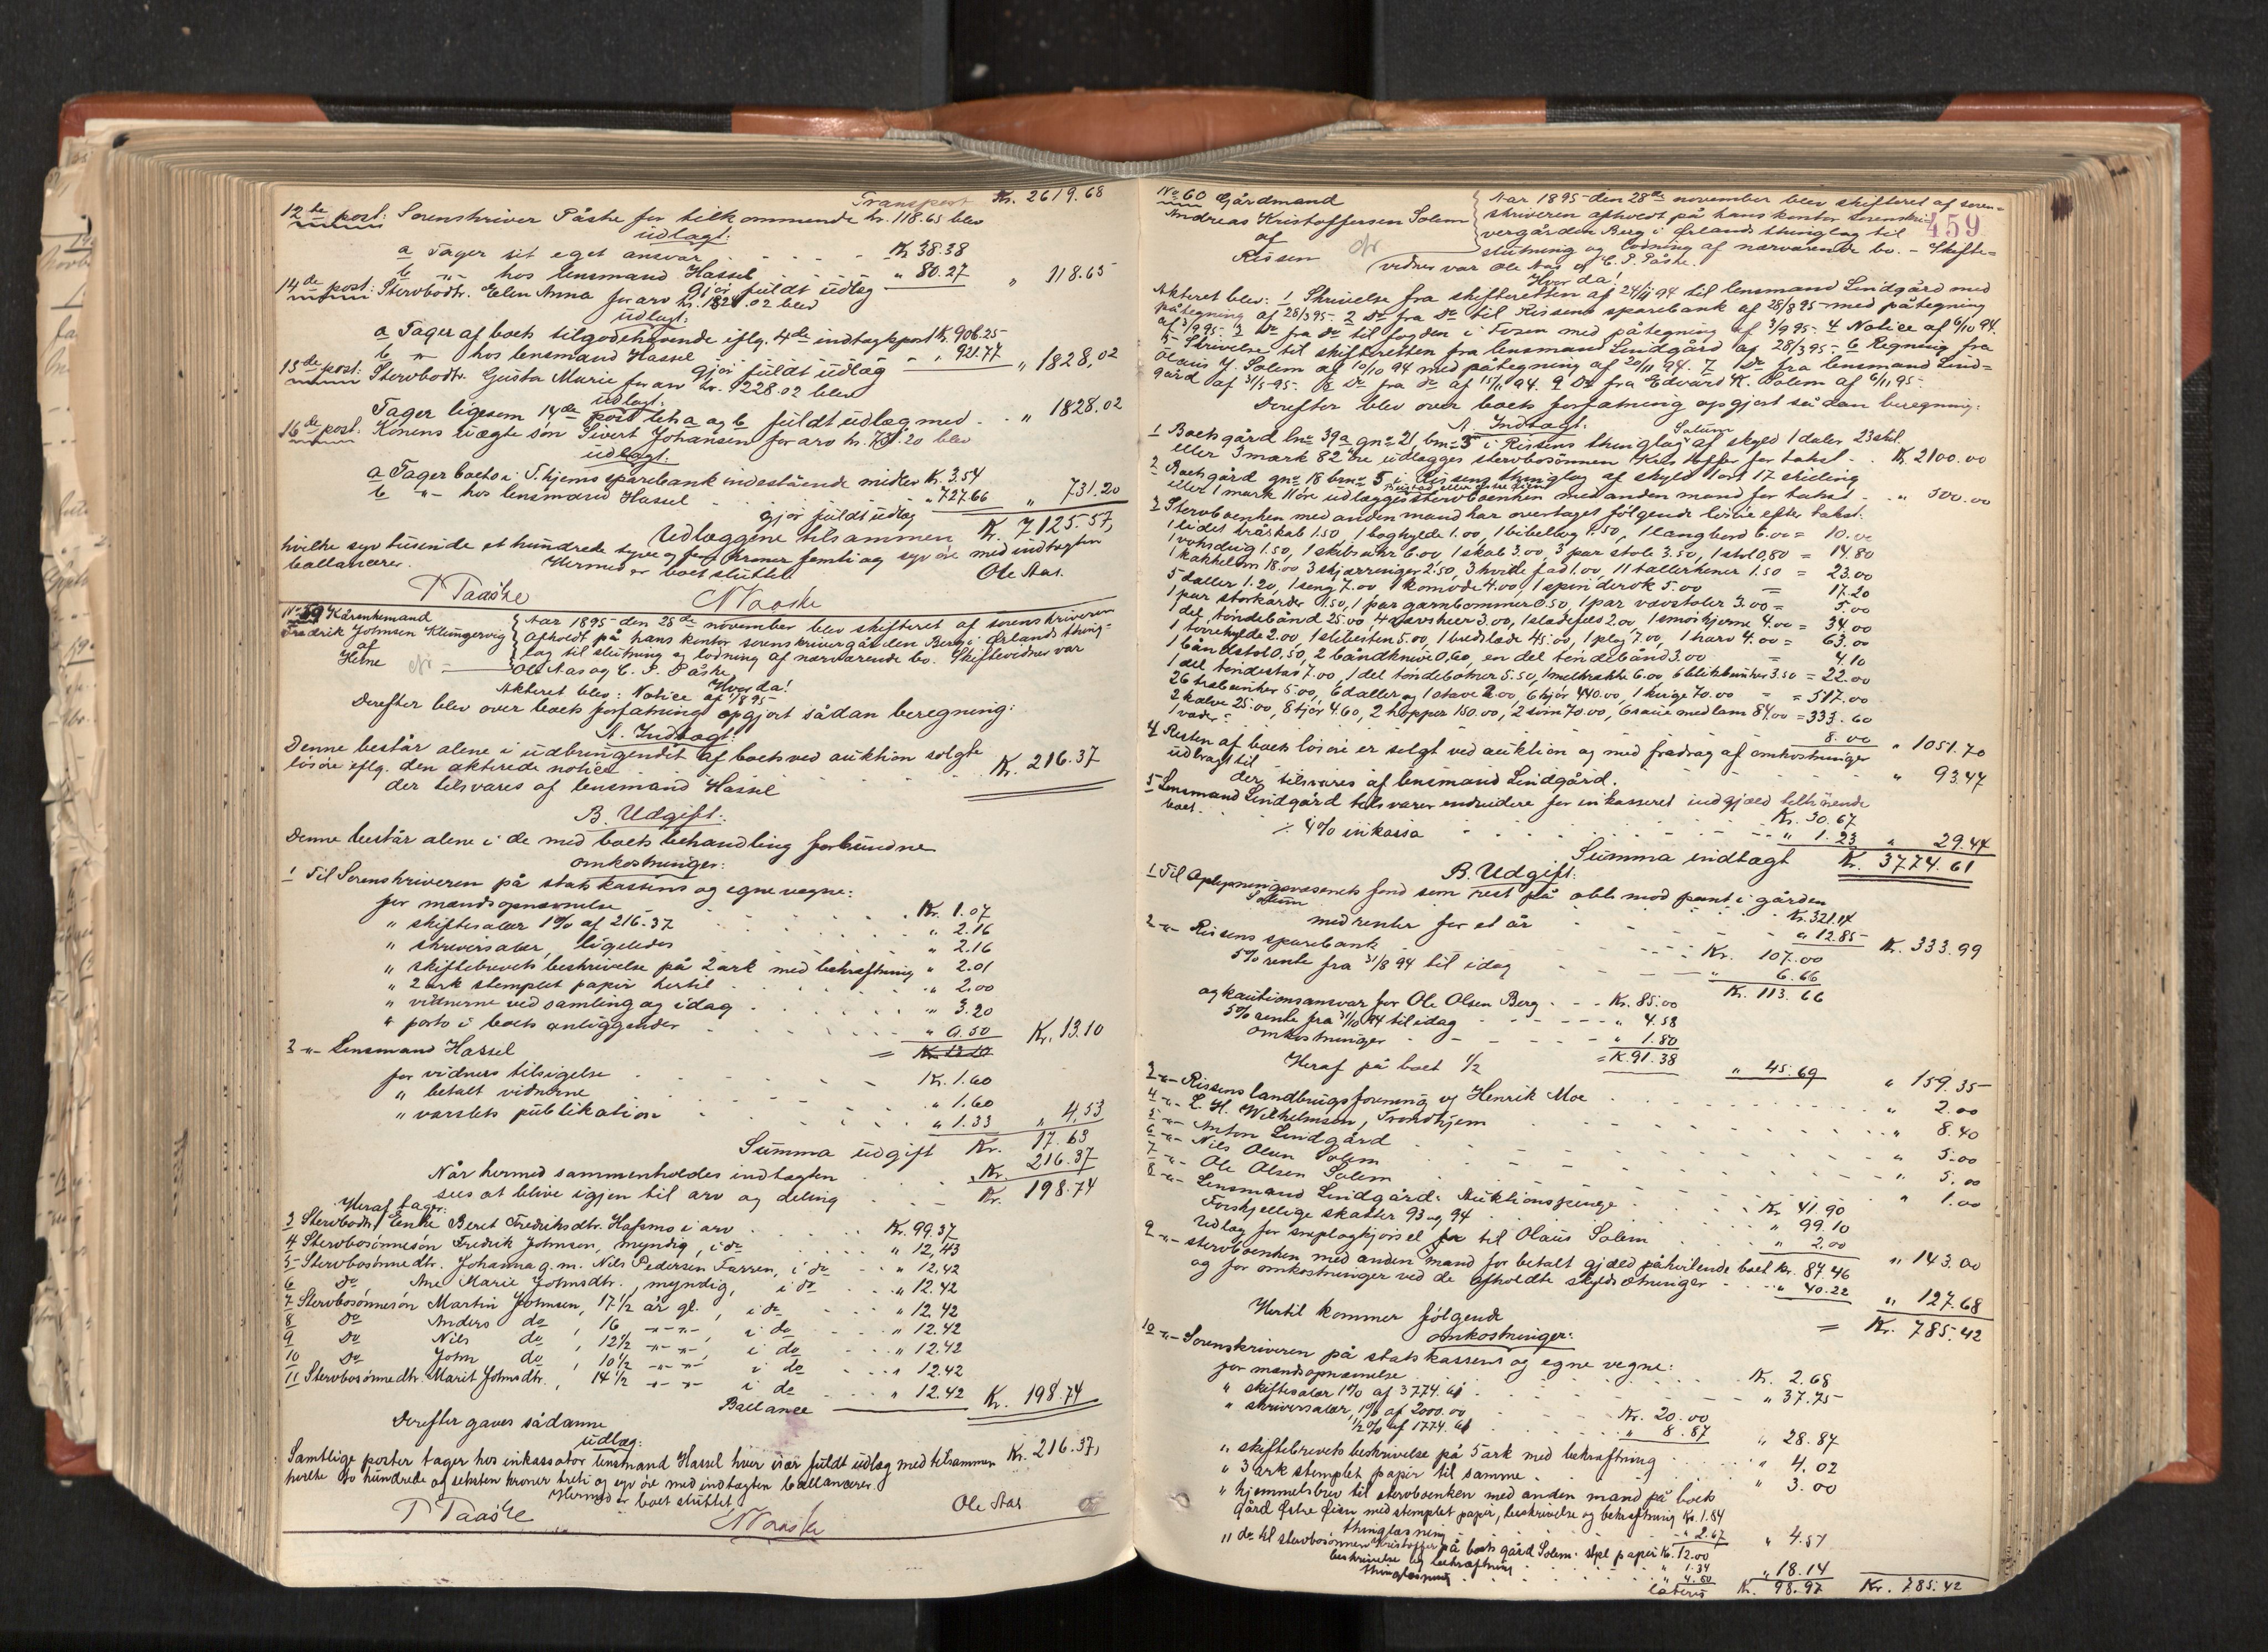 Transport Kr. 2619.68
12te post: Sorenskriver Påske for tilkommende kr. 118.65 blev
udlagt:
a Tager sit eget ansvar . . . . Kr 38.38
b -"- hos lensmand Hassel . . . " 80.27 " 118.65
gjør fuldt udlæg
14de post: Stervbodtr. Elen Anna for arv kr. 1828.02 blev
udlagt:
a Tager af boets tilgodehavende iflg. 4de indtægtspost K. 906.25
b -"- hos lensmand Hassel " 921.77 " 1828,02
gjør fuldt udlæg
15de post: Stervbodtr. Gusta Marie for arv kr. 1828.02 blev
udlagt:
Tager ligesom 14de post litr a og b fuldt udlæg med . " 1828.02
16de post: Konens uægte søn Sivert Johansen for arv kr. 731.20 blev
udlagt:
a Tager boets i T.hjems sparebank indestående midler Kr. 3.54
b -"- hos lensmand Hassel " 727.66 " 731.20
gjør fuldt udlæg
Udlæggene tilsammen K. 7125.57,
hvilke syv tusende et hundrede tyve og fem kroner femti og syv øre med indtægten
ballancerer. Hermed er boet sluttet.
P Paaske N Paaske Ole Aas.
No 59 Kårenkemand
Fredrik Johnsen Klungervig
af
Hevne
Aar 1895 den 28de november blev skifteret af sorenskriveren
afholdt på hans kontor sorenskrivergården Berg i Ørlands thing-
lag til slutning og lodning af nærværende bo. Skiftevidner var
Ole Aas og C. P. Påske.
Hvor da!
Akteret blev: Notice af /8 95
Derefter blev over boets forfatning opgjort sådan beregning:
A. Indtægt:
Denne består alene i udbringendet af boets ved auktion solgte
løsøre iflg. den akterede notice . . . Kr. 216.37
der tilsvares af lensmand Hassel
B. Udgift:
Denne består alene i de med boets behandling forbundne
omkostninger:
1 Til Sorenskriveren på statskassens og egne vegne:
for mandsopnævnelse . . . Kr. 1.07
" skiftesalær 1% af 216.37 . . . " 2.16
" skriversalær, ligeledes . . . " 2.16
" skiftebrevets beskrivelse på 2 ark med bekræftning " 2.01
" 2 ark stemplet papir hertil . . . " 2.00
" vidnerne ved samling og idag . . . " 3.20
" porto i boets anliggender . . . " 0.50 Kr. 13.10
= Kr. 13.10
2 -"- Lensmand Hassel
for vidners tilsigelse . . . Kr. 1.60
" betalt vidnerne . . . " 1.60
" varslets publikation . . . " 1.33 " 4,53
Summa udgift Kr. 17.63
Når hermed sammenholdes indtægten . . Kr. 216.37
sees at blive igjen til arv og deling . . Kr. 198.74
Heraf tager:
3 Stervbodts Enke Beret Fredriksdtr. Hafsmo i arv . . . Kr. 99.37
4 Stervbosønnesøn Fredrik Johnsen, myndig, i do . . . " 12,43
5 Stervbosønnedtr. Johanna g. m. Nils Pedersen Farren, i do . . " 12.42
6 Do Ane Marie Johnsdtr., myndig, i do . . " 12.42
7 Stervbosønnesøn Martin Johnsen, 17½ år gl. i do . . " 12.42
8 Do Anders do, 16 -"- -"-, i do . . " 12.42
9 Do Nils do, 12½ -"- -"-, i do . . " 12.42
10 Do John do, 10½ -"- -"- i do . . " 12.42
11 Stervbosønnedtr. Marit Johnsdtr., 14½ -"- -"- i do . . " 12.42 Kr. 198.74
Ballance
Derefter gaves sådanne
udlæg:
Samtlige poster tager hos inkassator lensmand Hassel hver især fuldt udlæg med tilsammen Kr. 216.37,
hvilke to hundrede og seksten kroner treti og syv øre med indtægten ballancerer.
Hermed er boet sluttet.
P Paaske N Paaske Ole Aas
459
No 60 Gårdmand
Andreas Kristoffersen Solem
af
Rissen
Aar 1895 den 28de november blev skifteret af soren-
skriveren afholdt på hans kontor sorenskri-
vergården Berg i Ørlands thinglag til
slutning og lodning af nærværende bo. – Skifte-
vidner var Ole Aas og C. P. Påske.
Hvor da!
Akteret blev: 1 Skrivelse fra skifteretten af 24/11 94 til lensmand Lindgård med
påtegning af 28/3 95. 2 Do fra Do til Rissens sparebank af 28/8 95 med påtegning
af 3/9 95. 3 Do fra do til fogden i Fosen med påtegning af 3/9 95. 4 Notice af 6/10 94.
5 Skrivelse til skifteretten fra lensmand Lindgård af 28/3 95. 6 Regning fra
Olaus J. Solem af 10/10 94 med påtegning af 20/11 94. 7 Do fra lensmand Lind-
gård af 31/5 95. 8 Do fra do af 15/11 94. 9 Do fra Edvard K. Solem af 6/11 95.
Derefter blev over boets forfatning opgjort sådan beregning:
A. Indtægt:
1 Boets gård lno 39a gno 21, bno 5 Solem i Rissens thinglag af skyld 1 daler 23 skil.
eller 3 mark 82 øre udlægges stervbosønnen Kristoffer for takst . . K. 2100.00
2 Boets gård gno 18 brno 5 i Rissens thinglag af skyld 1 ort 17 skilling
eller 1 mark 11 øre udlægges stervboenken med anden mand for takst . . " 500.00
3 Stervboenken med anden mand har overtaget følgende løsøre efter takst:
1 lidet træskab 1.50, 1 boghylde 1.00, 1 bibelbog 1.50, 1 langbord 6.00 = 10.00
1 voksdug 1.50, 1 skibsuhr 6.00, 1 skab 3.00, 3 par stole 3.50, 1 stol 0,80 = 14.80
1 kakkelovn 18.00 3 skjærringer 2.50, 3 hvide fad 1.00, 11 tallerkener 1.50 = 23.00
5 daller 1.20, 1 seng 7.00 1 komode 4.00, 1 spinderok 5.00 = 17.20
1 par storkarder 1.50, 1 par garnbommer 0.50, 1 par vævstoler 3.00 = 5.00
1 del tøndebånd 25.00, 4 vævskeer 3.00, 1 slædefæls 2.00 1 smørkjerne 4.00 = 34.00
1 tørrehylde 2.00, 1 slibesten 5.00, 1 bredslæde 45.00, 1 plog 7.00, 1 harv 4.00 = 63.00
1 båndstol 0,50, 2 båndknive 0,60, en del tøndebånd 3.00 = 4.10
1 del tøndestav 7.00, 1 del tøndebotner 5.50, 1 melkrakke 6.00, 6 blikbunker 3.50 = 22.00
26 træbunker 5.00, 6 daller og 1 stave 2.00, 6 kjør 440.00, 1 kvige 70.00 = 517.00
2 kalve 25.00, 8 kjør 4.60, 2 hopper 150.00, 2 svin 70.00, 6 saue med lam 84.00 = 333.60
1 væder 8.00 " 1051.70
4 Resten af boets løsøre er solgt ved auktion og med fradrag af omkostninger
udbragt til . . . " 93.47
der tilsvares af lensmand Lindgård.
5 Lensmand Lindgård tilsvarer endvidere for inkasseret indgjæld tilhørende
boet . . . Kr. 30.67
÷ 4% inkasso . . . " 1.23 " 29.44
Summa indtægt Kr. 3774.61
B. Udgift:
1 Til Oplysningsvæsenets fond som rest på obl. mod pant i gården
Solem . . . Kr. 321.14
med renter for et år . . . " 12.85 Kr. 333.99
2 -"- Rissens sparebank . . . Kr. 107.00
5% rente fra 31/8 94 til idag . . . " 6.66
Kr. 113.66
og kautionsansvar for Ole Olsen Berg . . Kr. 85.00
5% rente fra 31/10 94 til idag . . . " 4.58
omkostninger . . . " 1.80
= K. 91.38
Heraf på boet 1/2 " 45.69 " 159.35
3 -"- Rissens landbrugsforening v/ Henrik Moe . . . " 2.00
4 -"- L. H. Wilhelmsen, Trondhjem . . . " 8.40
5 -"- Anton Lindgård . . . " 5.00
6 -"- Nils Olsen Solem . . . " 5.00
7 -"- Ole Olsen Solem . . . " 1.00
8 -"- Lensmand Lindgård: Auktionspenge . . . Kr 41.90
Forskjellige skatter 93 og 94 . . . " 99.10
Udlæg for sneplogkjørsel til Olaus Solem . . . " 2.00 " 143.00
9 -"- stervboenken med anden mand for betalt gjæld påhvilende boet Kr. 87.46
og for omkostninger ved de afholdte skyldsætninger . . . " 40.22 " 127.68
= Kr. 785.42
Hertil kommer følgende
omkostninger:
10 -"- Sorenskriveren på statskassens og egne vegne:
for mandsopnævnelse . . . Kr. 2.68
" skiftesalær 1% af 3774.61 . . . " 37.75
" skriversalær, 1% af 2000.00 . . . Kr. 20.00
½% af 1774.61 " 8.87 " 28.87
" skiftebrevets beskrivelse på 5 ark med bekræftning . . . " 4.02
" 3 ark stemplet papir til samme . . . " 3.00
" hjemmelsbrev til stervboenken med anden mand på boets
gård Østre Øien med stemplet papir, beskrivelse og bekræftning Kr. 1.84
thinglæsning . . . " 2.67 " 4.51
" do til stervbosønnen Kristoffer på boets gård Solem: stpl papir Kr. 12.00
beskrivelse og bekræftning . . . " 1.34
thinglæsning . . . " 4.80 " 18.14
Lateris K. 98.97 Kr. 785.42